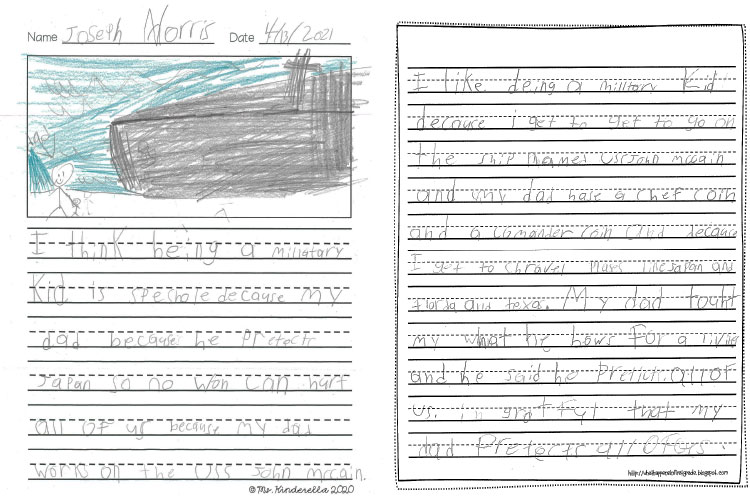 Name Joseph Norris Date 4/13/2021
I think being a miliatary
Kid is speshole decause my
dad because he Pretects
Japan so no won can hurt
all of us because my dad
work on the USS John mccain.
© Ms. Kinderella 2020
I like deing a military Kid
decause i get to get to go on
the ship named Uss John mccain
and my dad hase a chef coin
and a comander coin and decause
I get to thravel plases like Japan and
florida and texas. My dad tought
my what he bows for a living
and he said he Pretich. all of
us. im gratful that my
dad Pretects all OF us.
http://whathappensinfirstgrade.blogspot.com